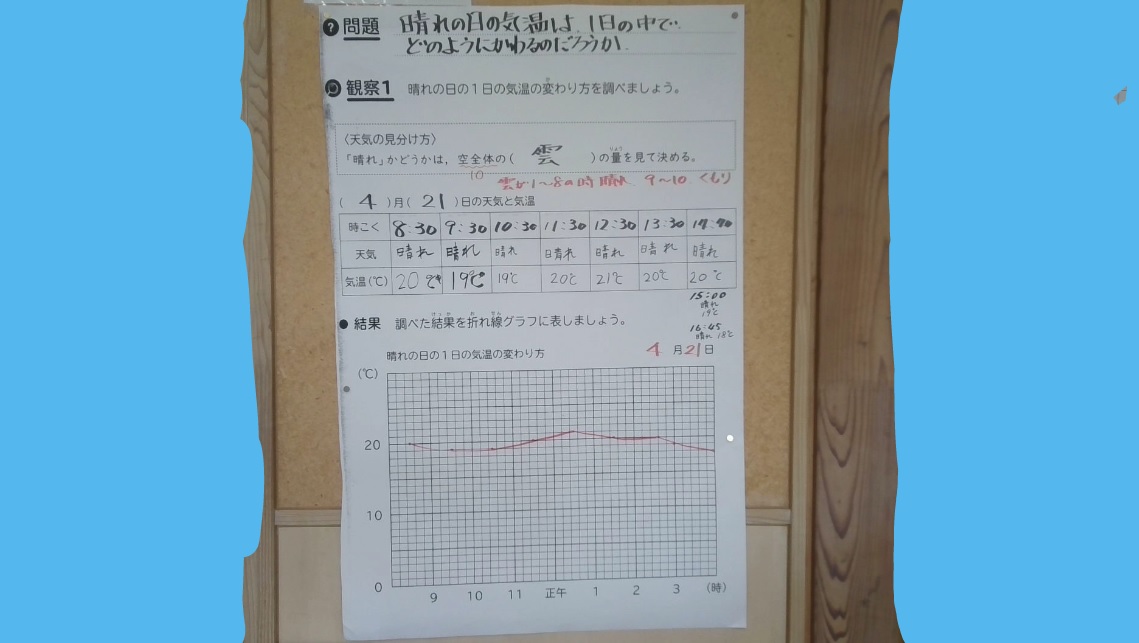 ? 問題 晴れの日の気温は、1日の中で
どのようにかわるのだろうか。
観察1 晴れの日の1日の気温の変わり方を調べましょう。
〈天気の見分け方〉
「晴れ」かどうかは，空全体の( 雲 )の量を見て決める。
10 雲が1～8の時晴れ 9～10 くもり
( 4 )月( 21 )日の天気と気温
時こく 8:30 9:30 10:30 11:30 12:30 13:30
天気 晴れ 晴れ 晴れ 晴れ 晴れ 晴れ 晴れ
気温(℃) 20℃ 19℃ 19℃ 20℃ 21℃ 20℃ 20℃
15:00
晴れ
19℃
● 結果 調べた結果を折れ線グラフに表しましょう。
16:45
晴れ 18℃
晴れの日の1日の気温の変わり方 4月21日
(℃)
20
10
0
9 10 11 正午 1 2 3 (時)